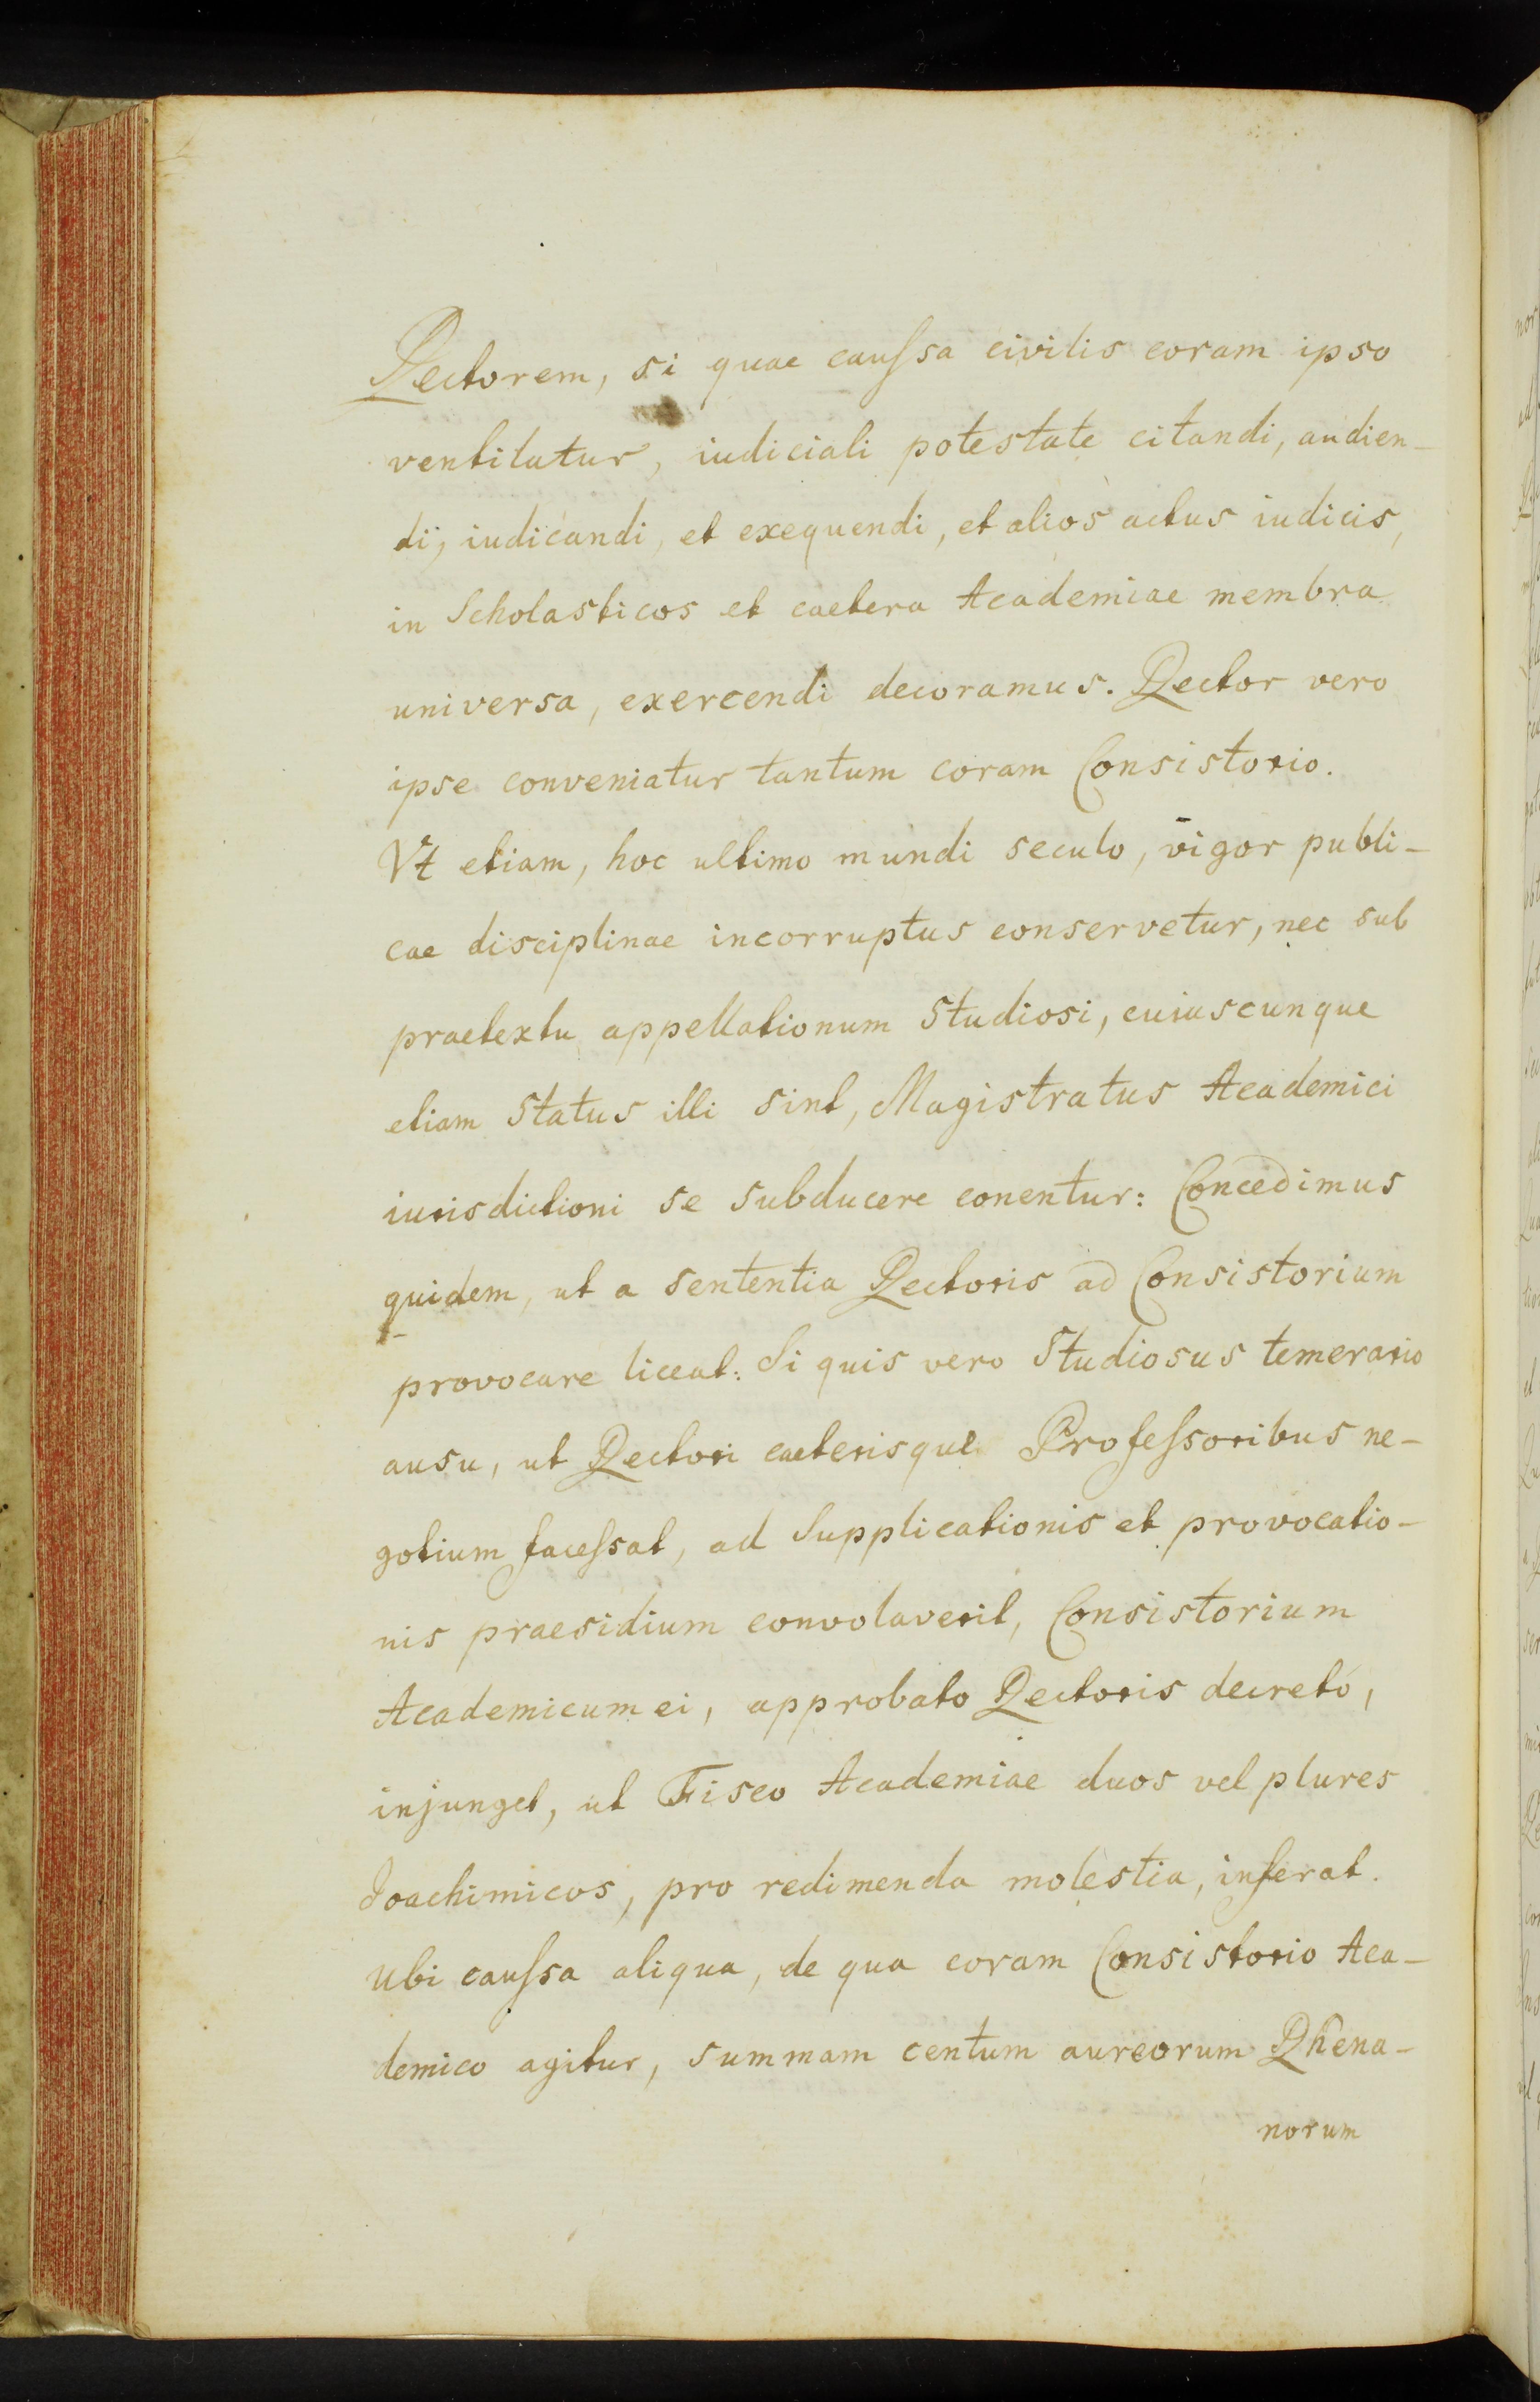 Rectorem, si quae cauſsa civilis coram ipso
ventilatur, iudiciali potestate citandi, audien-
di, iudicandi, et exequendi, et alios actus iudicis,
in Scholasticos et caetera Academiae membra
universa, exercendi decoramus. Rector vero
ipse conveniatur tantum coram Consistorio.
Vt etiam, hoc ultimo mundi seculo, vigor publi-
cae disciplinae incorruptus conservetur, nec sub
praetextu appellationum Studiosi, cuiuscunque
etiam Status illi sint, Magistratus Academici
iurisdictioni se subducere conentur: Concedimus
quidem, ut a sententia Rectoris ad Consistorium
provocare liceat: Si quis vero Studiosus temerario
ausu, ut Rectori caeterisque Profeſsoribus ne-
gotium faceſsat, ad Supplicationis et provocatio-
nis praesidium convolaverit, Consistorium
Academicum ei, approbato Rectoris decreto,
injunget, ut Fisco Academiae duos vel plures
Joachimicos, pro redimenda molestia, inferat.
Ubi cauſsa aliqua, de qua coram Consistorio Aca-
demico agitur, summam centum aureorum Rhena-
norum